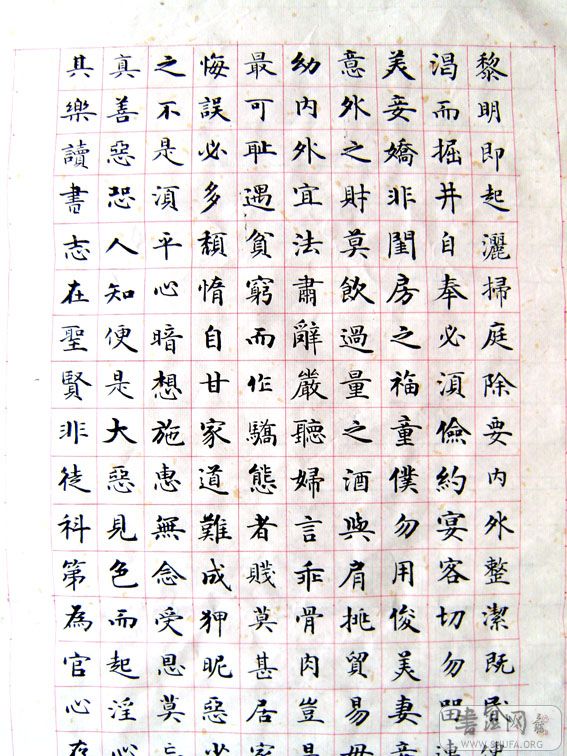 黎明即起灑掃庭除要內外整潔既
渴而掘井自奉必湏儉約宴客切勿畱
美妾嬌非閨房之福童僕勿用俊美妻妾
意外之財莫飲過量之酒與肩挑貿易毋
幼內外宜法肅辭嚴聽婦言乖骨肉豈是
最可耻遇貧窮而作驕態者賤莫甚居家
悔誤必多頹惰自甘家道難成狎昵惡少
之不是湏平心暗想施惠無念受恩莫忘
真善惡恐人知便是大惡見色而起淫心
其樂讀書志在聖賢非徒科第為官心存
書法网
WWW.SHUFA.ORG